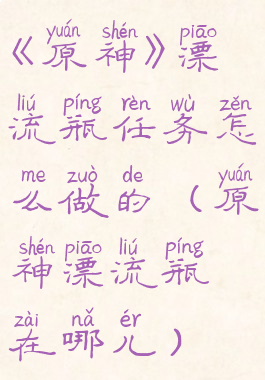 yuán shén piāo
《原神》漂
liú píng rèn wù zěn
流瓶任务怎
me zuò de yuán
么做的（原
shén piāo liú píng
神漂流瓶
zài nǎ ér
在哪儿）